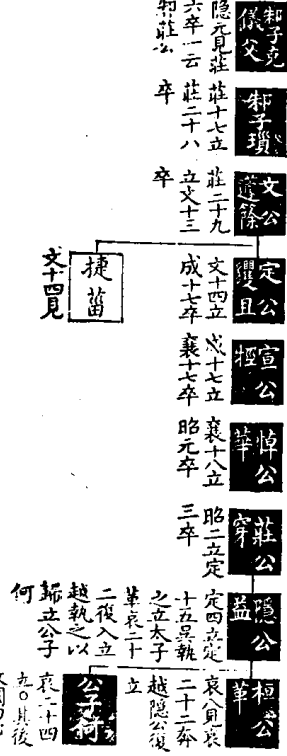 邾子克
儀父
隱元見莊
六卒一云
邾子瑣
莊十七立
莊二十八
卒
文公
蘧篨
莊二十九
立文十三
卒
定公
貜且
文十四立
成十七卒
捷菑
文十四見
宣公
牼
成十七立
襄十七卒
悼公
華
襄十八立
昭元卒
莊公
穿
昭二立定
三卒
隱公
益
定四立定
十五吳執
之立太子
革哀二十
二復入立
越執之以
歸立公子
何
桓公
革
哀八見哀
二十二奔
越隱公復
立
公子何
哀二十四
立〇其後